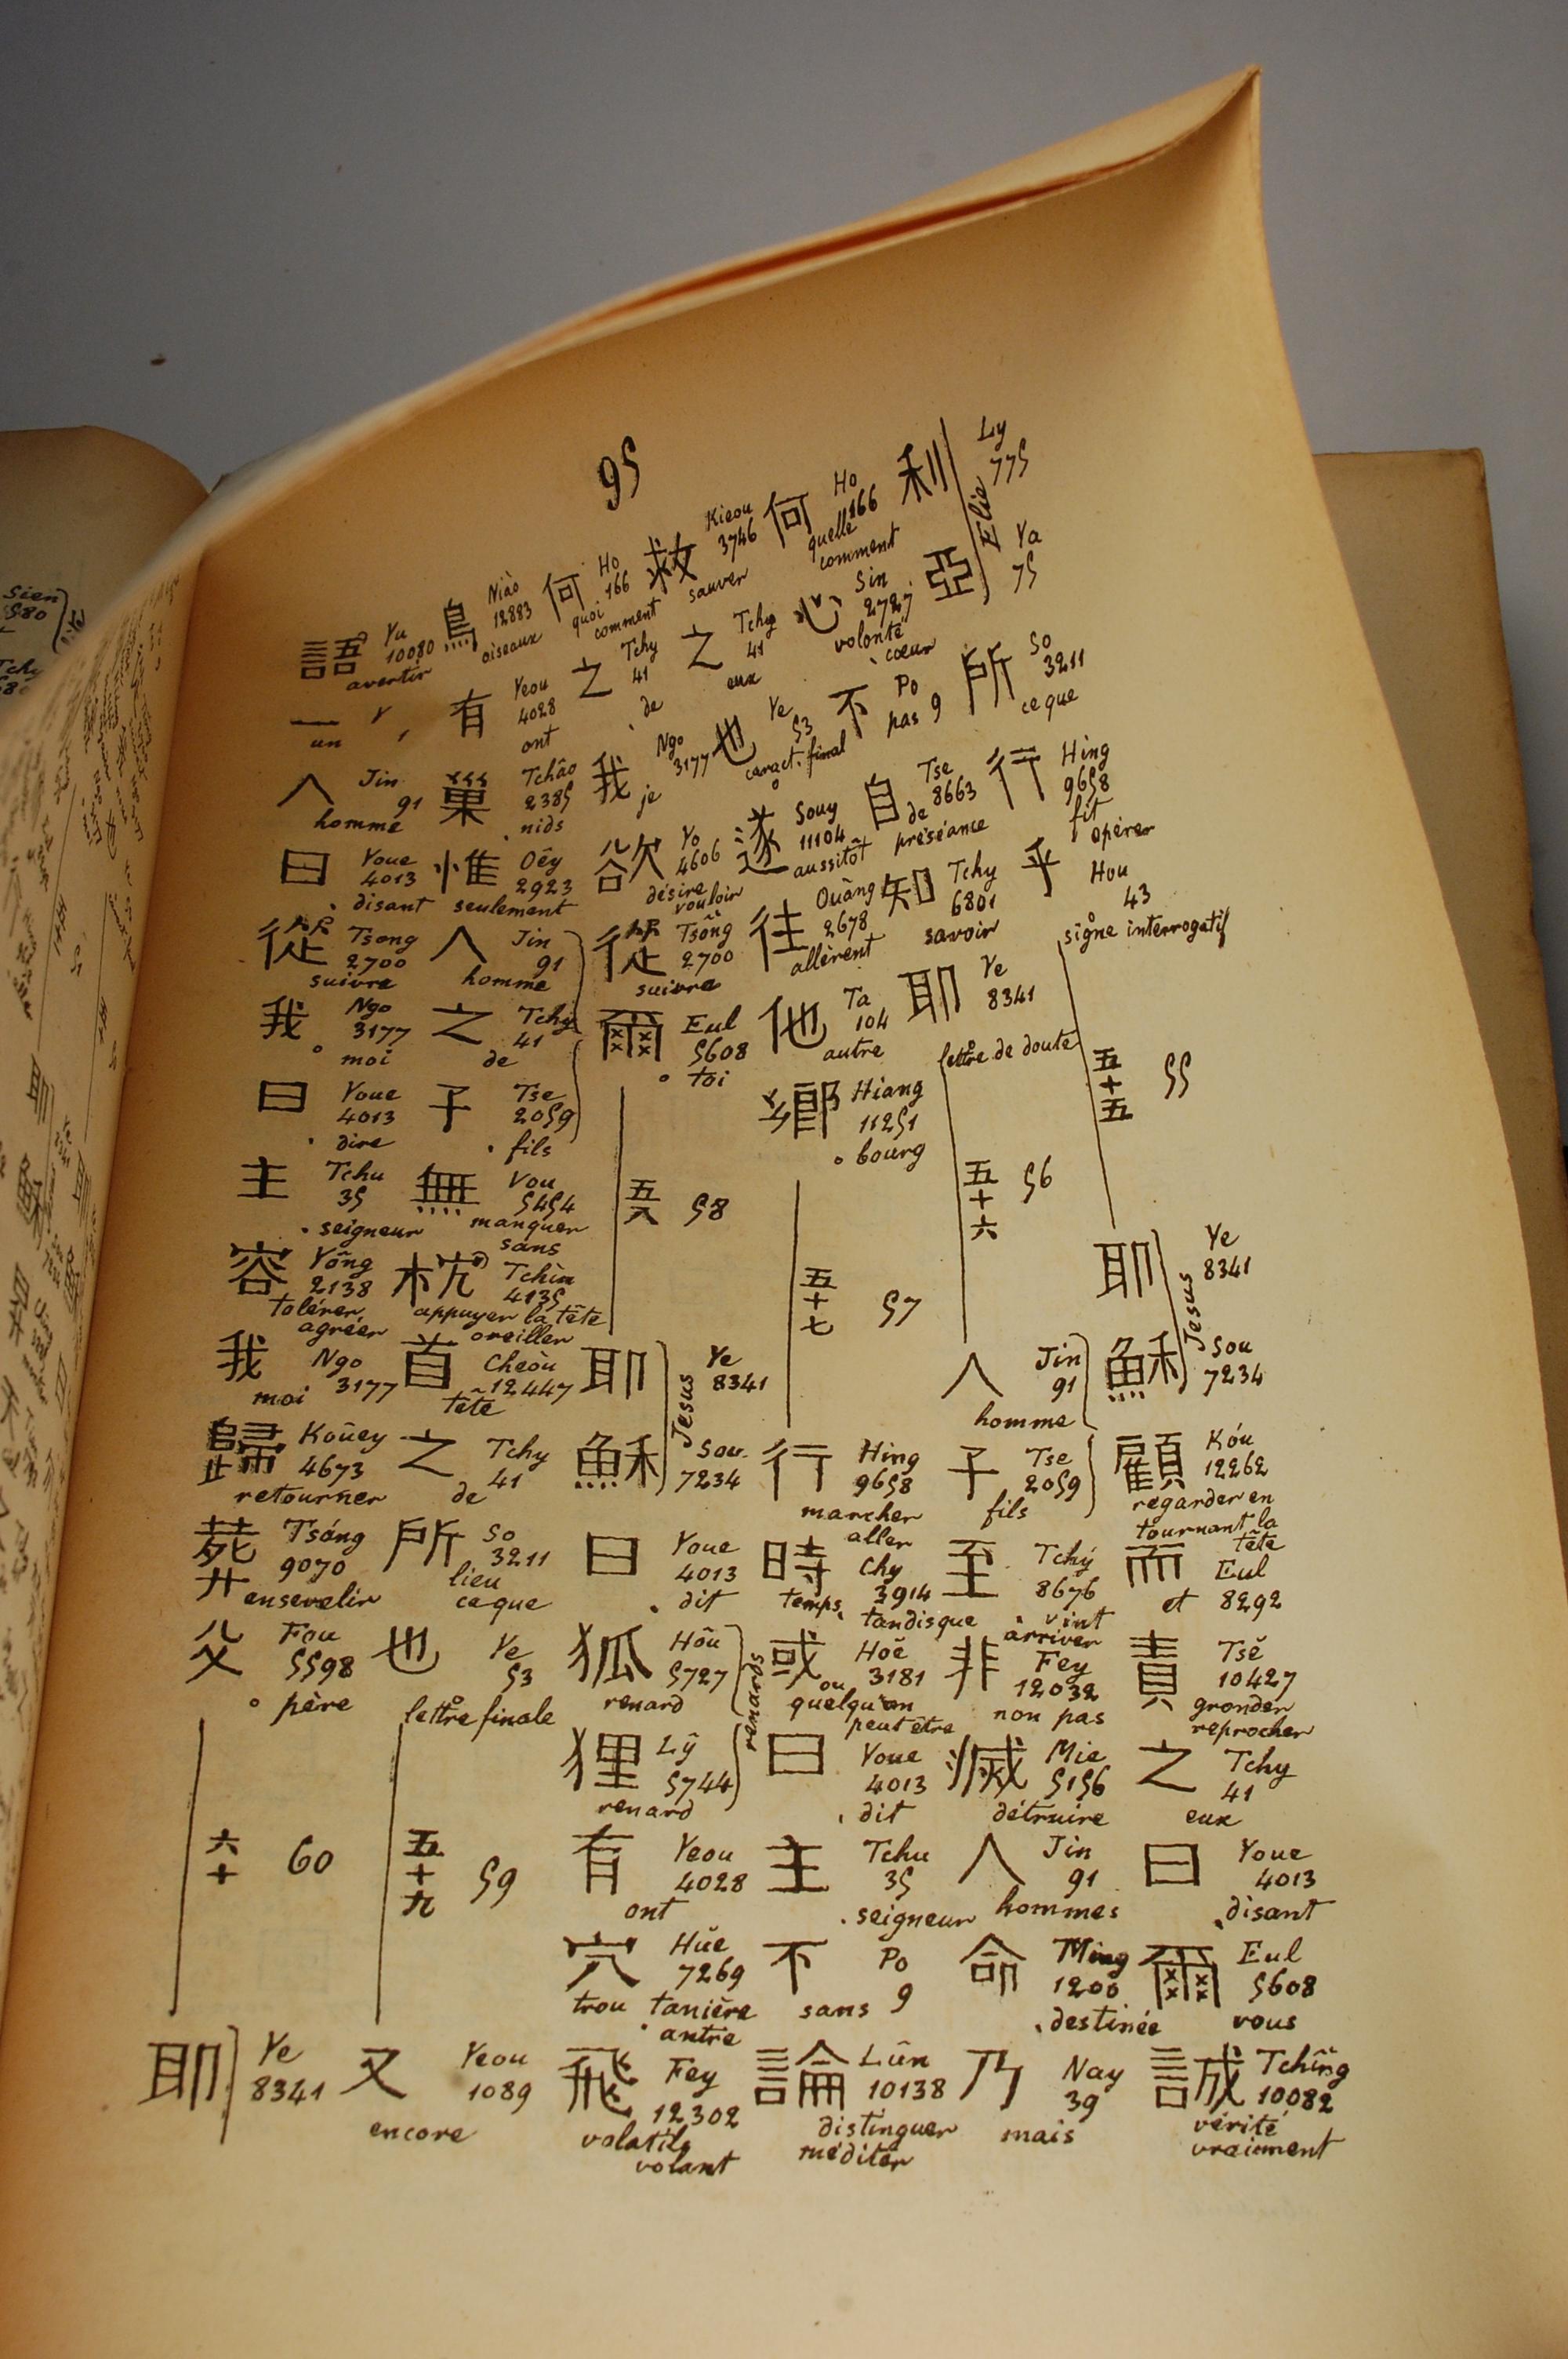 95
利 Ly 775
亞 Ya 75
Elie
所 So 3211 ce que
行 Hing 9658 fit opérer
乎 Hou 43 signe interrogatif
五十五 55
耶 Ye 8341
穌 Sou 7234
Jesus
顧 Kóu 12262 regarder en tournant la tête
而 Eul 8292 et
責 Tsě 10427 gronder reprocher
之 Tchy 41 eux
曰 Youe 4013 disant
爾 Eul 5608 vous
誠 Tchîng 10082 vérité vraiment
何 Ho 166 quelle comment
心 Sin 2727 volonté cœur
不 Po 9 pas
自 Tse 8663 de préséance
知 Tchy 6801 savoir
耶 Ye 8341 lettre de doute
五十六 56
人 Jin 91 homme
子 Tse 2059 fils
至 Tchý 8676 vint arriver
非 Fey 12032 non pas
滅 Mie 5156 détruire
人 Jin 91 hommes
命 Ming 1200 destinée
乃 Nay 39 mais
救 Kieou 3746 sauver
之 Tchy 41 eux
也 Ye 53 caract. final
遂 Souy 11104 aussitôt
往 Ouàng 2678 allèrent
他 Ta 104 autre
鄉 Hiang 11251 bourg
五十七 57
行 Hing 9658 marcher aller
時 Chy 3914 temps, tandisque
或 Hoě 3181 ou quelqu'un peut être
曰 Youe 4013 dit
主 Tchu 35 seigneur
不 Po 9 sans
論 Lûn 10138 distinguer méditer
何 Ho 166 quoi comment
之 Tchy 41 de
我 Ngo 3177 je
欲 Yo 4606 désire vouloir
從 Tsông 2700 suivre
爾 Eul 5608 toi
五八 58
耶 Ye 8341
穌 Sou 7234
Jesus
曰 Youe 4013 dit
狐 Hôu 5727 renard
狸 Lŷ 5744 renard
renards
有 Yeou 4028 ont
穴 Hüe 7269 trou tanière antre
飛 Fey 12302 volatile volant
鳥 Niào 12883 oiseaux
有 Yeou 4028 ont
巢 Tchâo 2385 nids
惟 Oêy 2923 seulement
人 Jin 91 homme
之 Tchy 41 de
子 Tse 2059 fils
無 Vou 5454 manquer sans
枕 Tchìn 4135 appuyer la tête oreiller
首 Cheòu 12447 tête
之 Tchy 41 de
所 So 3211 lieu ce que
也 Ye 53 lettre finale
五十九 59
又 Yeou 1089 encore
語 Yu 10080 avertir
一 Y 1 un
人 Jin 91 homme
曰 Youe 4013 disant
從 Tsong 2700 suivre
我 Ngo 3177 moi
曰 Youe 4013 dire
主 Tchu 35 seigneur
容 Yông 2138 tolérer agréer
我 Ngo 3177 moi
歸 Koûey 4673 retourner
葬 Tsáng 9070 ensevelir
父 Fou 5598 père
六十 60
耶 Ye 8341